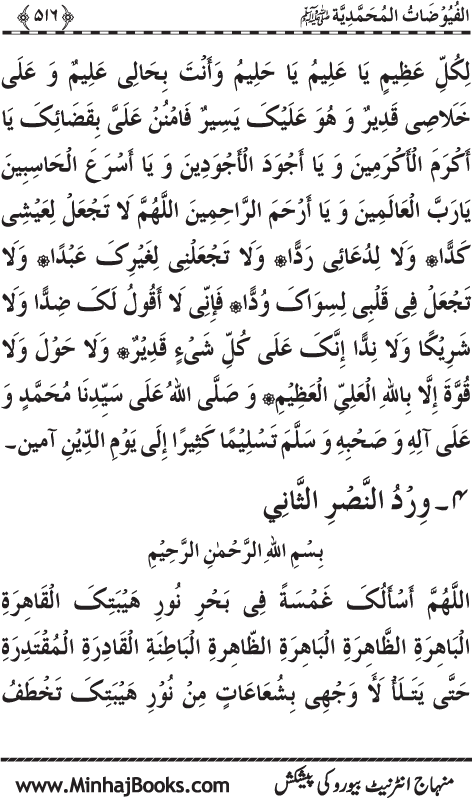 الفُيُوْضَاتُ المُحَمَّدِيَّة ﷺ ﴿۵۱۶﴾
لِكُلِّ عَظِيمٍ يَا عَلِيمُ يَا حَلِيمُ وَأَنْتَ بِحَالِى عَلِيمٌ وَ عَلَى
خَلَاصِى قَدِيرٌ وَ هُوَ عَلَيْکَ يَسِيرٌ فَامْنُنْ عَلَىَّ بِقَضَائِکَ يَا
أَكْرَمَ الْأَكْرَمِينَ وَ يَا أَجْوَدَ الْأَجْوَدِينَ وَ يَا أَسْرَعَ الْحَاسِبِينَ
يَارَبَّ الْعَالَمِينَ وَ يَا أَرْحَمَ الرَّاحِمِينَ اللَّهُمَّ لَا تَجْعَلْ لِعَيْشِى
كَدًّا۞ وَلَا لِدُعَائِى رَدًّا۞ وَلَا تَجْعَلْنِى لِغَيْرِکَ عَبْدًا۞ وَلَا
تَجْعَلْ فِى قَلْبِى لِسِوَاکَ وُدًّا۞ فَإِنِّى لَا أَقُولُ لَکَ ضِدًّا وَلَا
شَرِيْكًا وَلَا نِدًّا إِنَّکَ عَلَى كُلِّ شَىْءٍ قَدِيْرٌ۞ وَلَا حَوْلَ وَلَا
قُوَّةَ إِلَّا بِاللهِ الْعَلِىِّ الْعَظِيْمِ۞ وَ صَلَّى اللهُ عَلَى سَيِّدِنَا مُحَمَّدٍ وَ
عَلَى آلِهِ وَ صَحْبِهِ وَ سَلَّمَ تَسْلِيْمًا كَثِيْرًا إِلَى يَوْمِ الدِّيْنِ آمين۔
۴۔ وِرْدُ النَّصْرِ الثَّانِي
بِسْمِ اللهِ الرَّحْمٰنِ الرَّحِيْمِ
اللَّهُمَّ أَسْأَلُکَ غَمْسَةً فِى بَحْرِ نُورِ هَيْبَتِکَ الْقَاهِرَةِ
الْبَاهِرَةِ الظَّاهِرَةِ الْبَاهِرَةِ الظَّاهِرةِ الْبَاطِنَةِ الْقَادِرَةِ الْمُقْتَدِرَةِ
حَتَّى يَتَـلَأْ لَأَ وَجْهِى بِشُعَاعَاتٍ مِنْ نُوْرِ هَيْبَتِکَ تَخْطَفُ
منہاج انٹرنیٹ بیورو کی پیشکش www.MinhajBooks.com